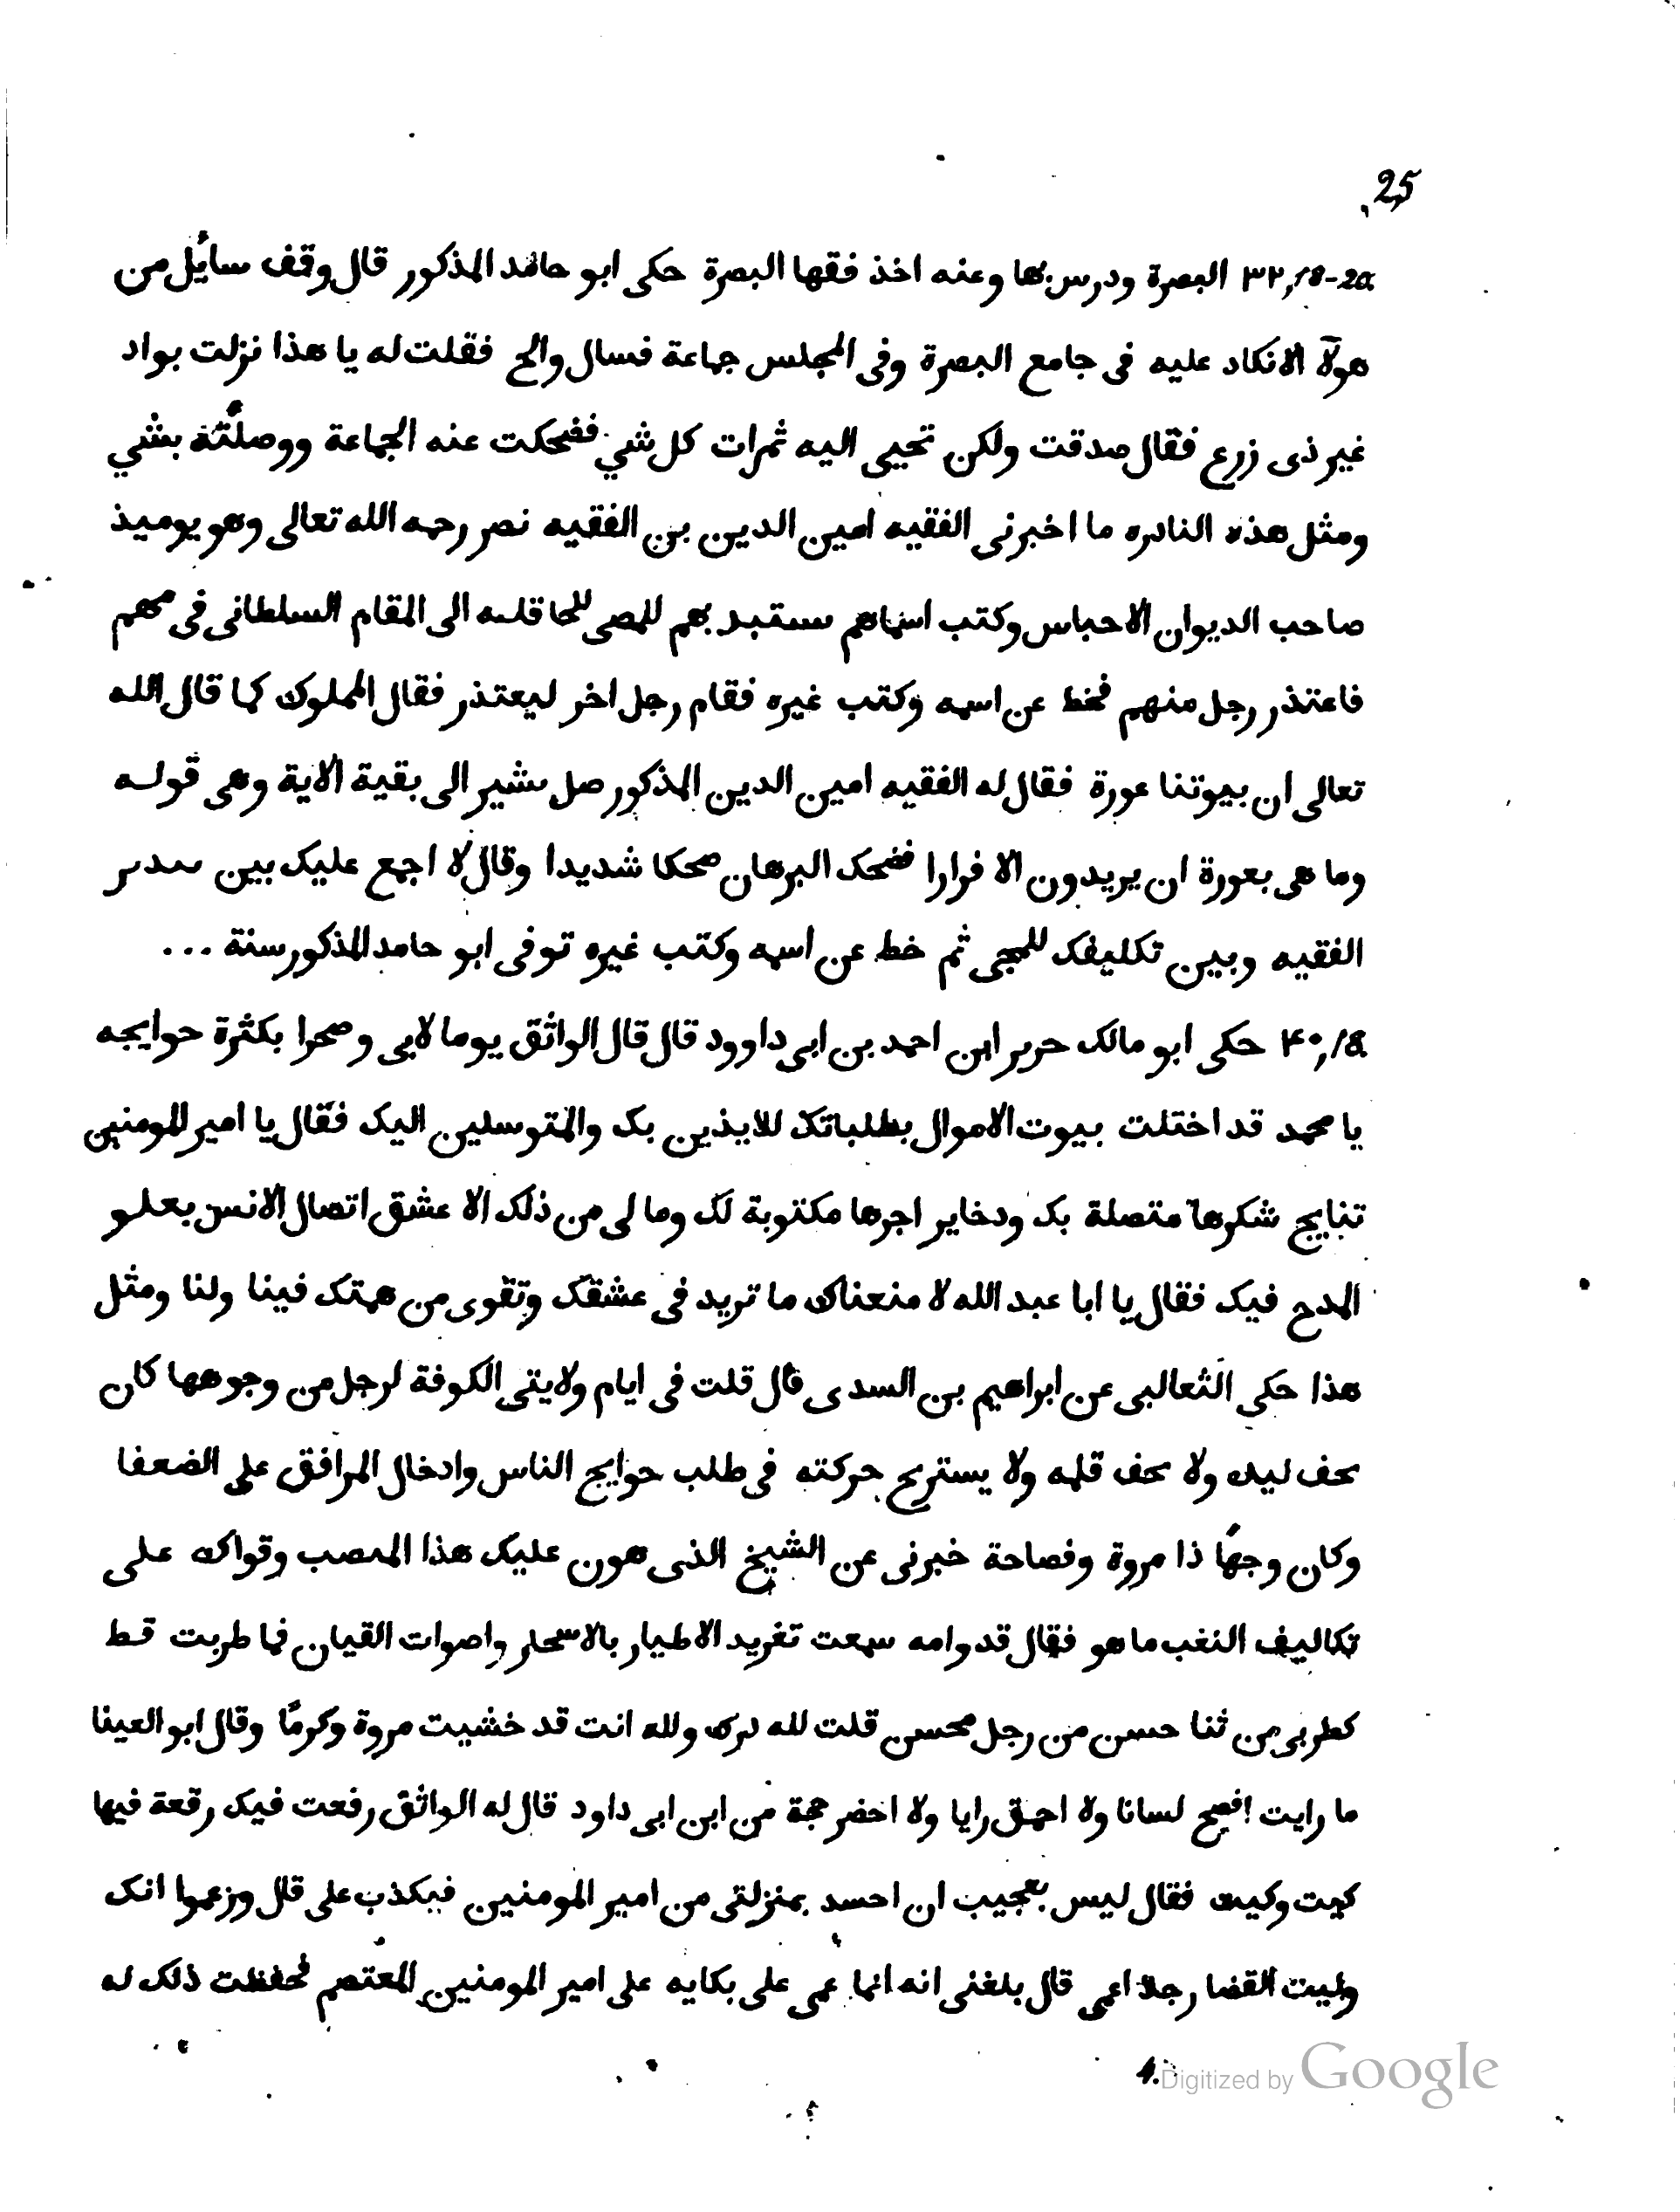 25
٣٢,18-20. البصرة ودرس بها وعنه اخذ فقها البصرة حكى ابو حامد المذكور قال وقف سايل من
هولآ الانكاد عليه فى جامع البصرة وفى المجلس جماعة فسال والح فقلت له يا هذا نزلت بواد
غير ذى زرع فقال صدقت ولكن تجيى اليه ثمرات كل شي فضحكت عنه الجماعة ووصلته بشي
ومثل هذه النادره ما اخبرنى الفقيه امين الدين بن الفقيه نصر رحمه الله تعالى وهو يوميذ
صاحب الديوان الاحباس وكتب اسماهم بهم الى المقام السلطانى فى مهم
فاعتذر رجل منهم فخط عن اسمه وكتب غيره فقام رجل اخر ليعتذر فقال المملوك كما قال الله
تعالى ان بيوتنا عورة فقال له الفقيه امين الدين المذكور صل يشير الى بقية الاية وهى قوله
وما هى بعورة ان يريدون الا فرارا فضحك البرهان ضحكا شديدا وقال لا اجمع عليك بين
الفقيه وبين تكليفك للمجى ثم خط عن اسمه وكتب غيره توفى ابو حامد المذكور سنة ...
٤٠,18 حكى ابو مالك حرير ابن احمد بن ابى داوود قال قال الواثق يوما لابى وضحرا بكثرة حوايجه
يا محمد قد اختلت بيوت الاموال بطلباتك للايذين بك والمتوسلين اليك فقال يا امير المومنين
تنايج شكرها متصلة بك وذخاير اجرها مكتوبة لك وما لى من ذلك الا عشق اتصال الانسن بعلو
المدح فيك فقال يا ابا عبد الله لا منعناك ما تريد فى عشقك وتقوى من همتك فينا ولنا ومثل
هذا حكى الثعالبى عن ابراهيم بن السدى قال قلت فى ايام ولايتى الكوفة لرجل من وجوهها كان
يحف ليده ولا يحف قلمه ولا يستريح حركته فى طلب حوايج الناس وادخال المرافق على الضعفا
وكان وجهًا ذا مروة وفصاحة خبرنى عن الشيخ الذى هون عليك هذا المنصب وقواك على
تكاليف النغب ما هو فقال قد وامه سمعت تغريد الاطيار بالاسحار واصوات القيان فما طربت قط
كطربى من ثنا حسن من رجل محسن قلت لله درك ولله انت قد خشيت مروة وكرمًا وقال ابو العينا
ما رايت افصح لسانا ولا احمق رايا ولا احضر حجة من ابن ابى داود قال له الواثق رفعت فيك رقعة فيها
كيت وكيت فقال ليس بعجيب ان احسد بمنزلتى من امير المومنين فيكذب على قال وزعموا انك
وليت القضا رجلا اعمى قال بلغنى انه انما عمى على بكايه على امير المومنين المعتصم فحفظت ذلك له
4.
Digitized by Google